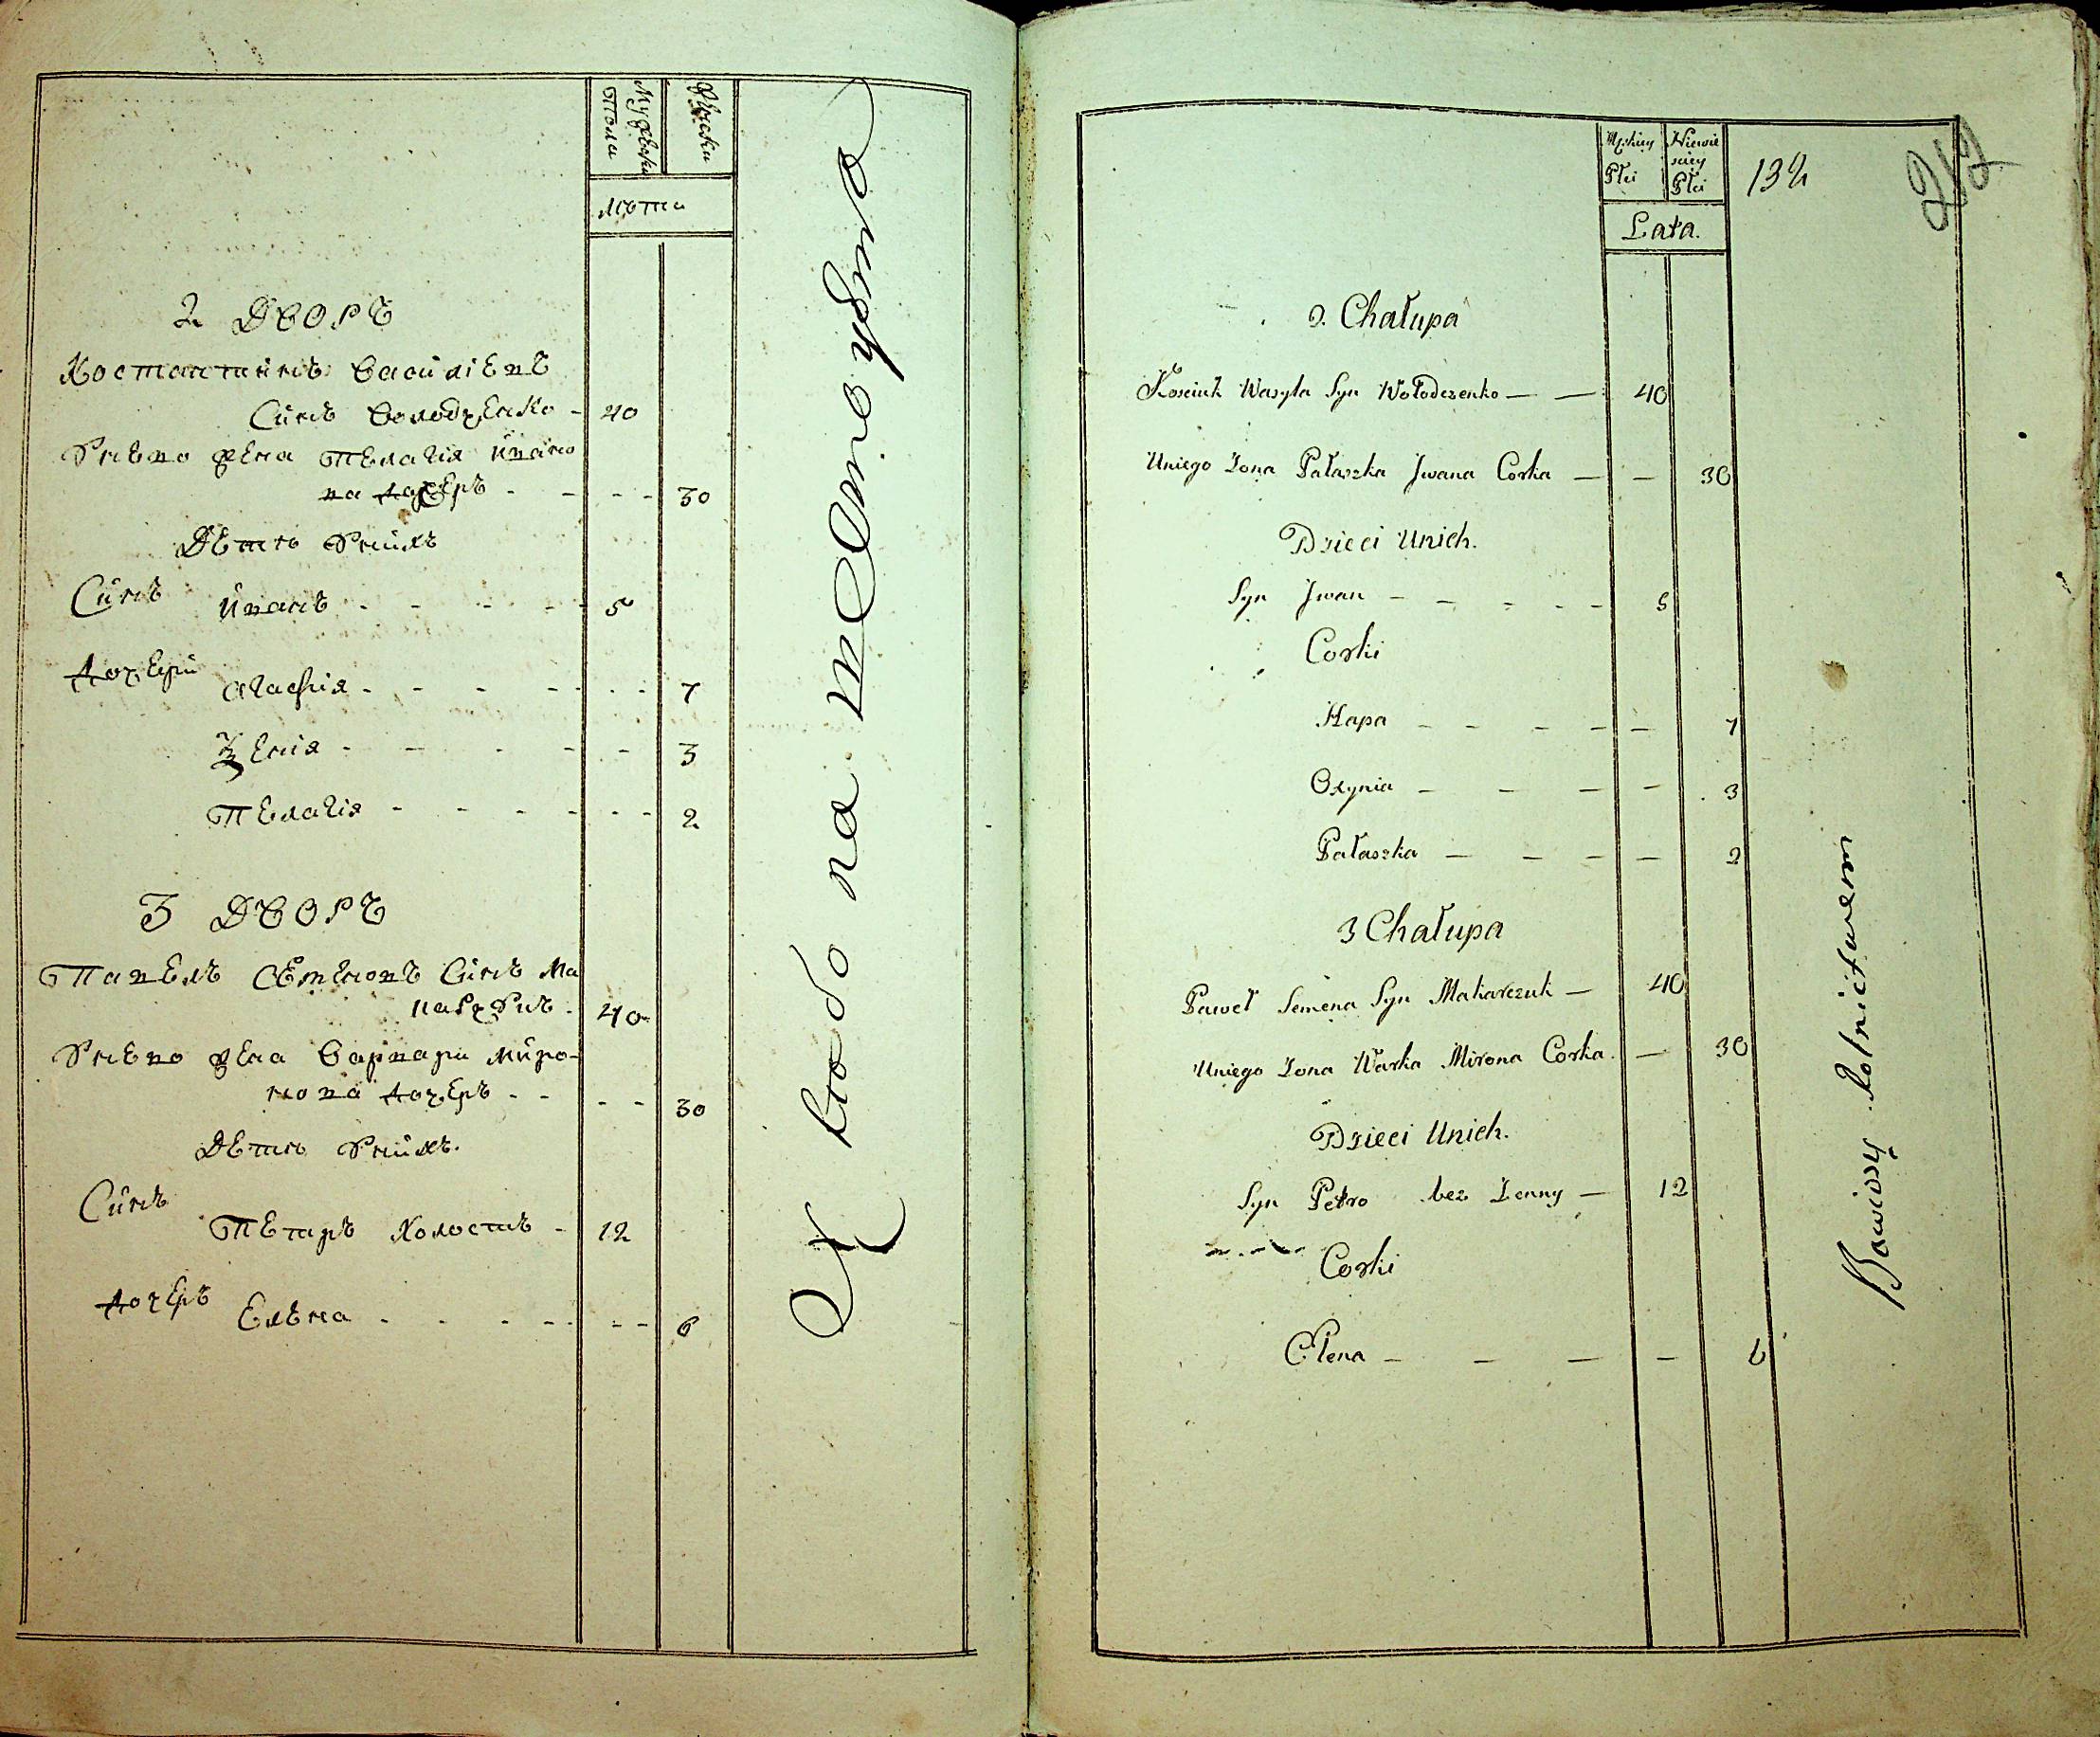 Мужеска
Пола
Женска
Лѣта
2 Дворъ
Костантинъ Василіевъ
Синъ Володченко - 40
Унево жена Пелагія Ивано
ва дочеръ - - - - 30
Дети Унихъ
Синъ Иванъ - - - - 5
Дочери Агафія - - - - - - 7
Ксенія - - - - - 3
Пелагія - - - - - - 2
3 Дворъ
Павелъ Семеновъ Синъ Ма
карчукъ - 40
Унево жена Варвара Миро-
нова дочеръ - - - - 30
Дети Унихъ.
Синъ
Петаръ Холостъ - 12
Дочеръ Елѣна - - - - - - - 6
Męskiey Płci
Niewie
sciey
Płci
132
212
Lata.
2. Chałupa
Kosciuk Wasyla Syn Wołodczenko — — 40
Uniego Zona Pałaszka Jwana Corka — — 30
Dzieci Unich.
Syn Jwan - - - - - 5
Corki
Hapa - - - - - 7
Oxynia - - - - 3
Pałaszka — - - - 2
3 Chałupa
Paweł Semena Syn Makarczuk — 40
Uniego Zona Warka Mirona Corka. — 30
Dzieci Unich.
Syn Petro bez Zenny — 12
Corki
Elena - - — - 6
Bawiący Rolnictwem